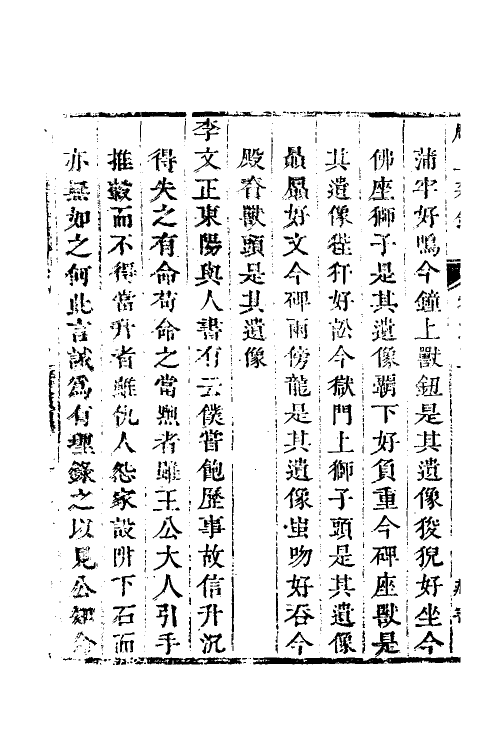 蒲牢好鳴今鐘上獸鈕是其遺像狻猊好坐今
佛座獅子是其遺像覇下好負重今碑座獸是
其遺像狴犴好訟今獄門上獅子頭是其遺像
贔屭好文今碑兩傍龍是其遺像蚩吻好吞今
殿脊獸頭是其遺像
李文正東陽與人書有云僕嘗飽歷事故信升沉
得失之有命苟命之當黜者雖王公大人引手
推轂而不得當升者雖仇人怨家設阱下石而
亦無如之何此言誠爲有理錄之以見公知命